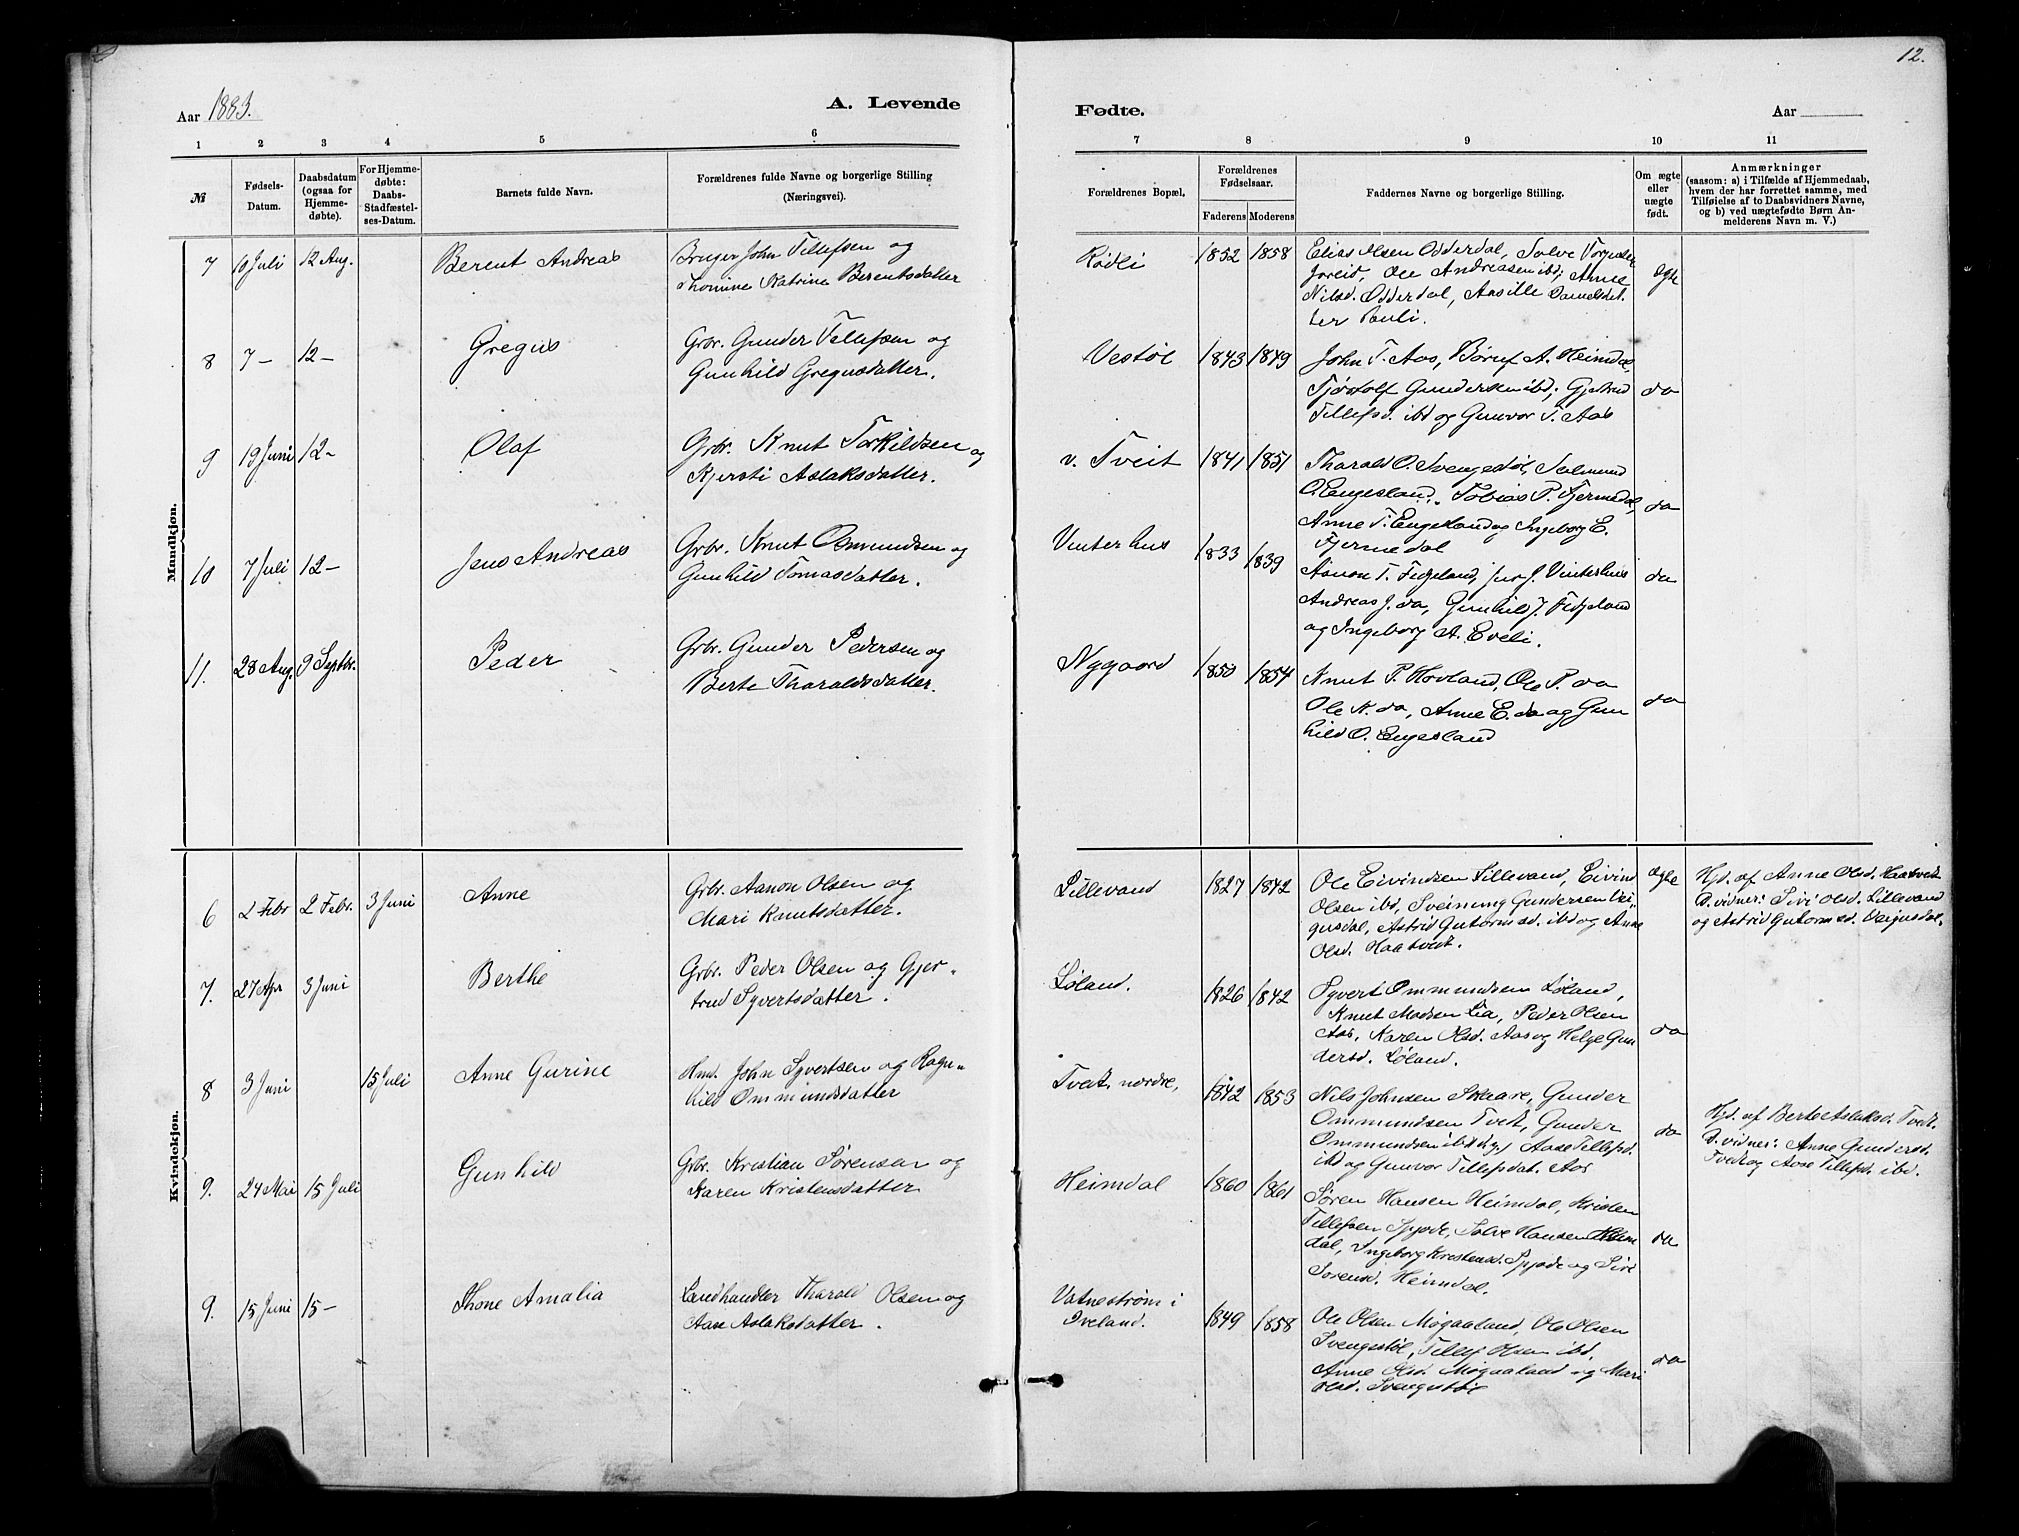 12.
Aar 1883.
A. Levende
Fødte.
Aar
1 2 3 4 5 6 7 8 9 10 11
№
Fødsels-
Datum.
Daabsdatum
(ogsaa for
Hjemme-
døbte).
For Hjemme-
døbte:
Daabs-
Stadfæstel-
ses-Datum.
Barnets fulde Navn.
Forældrenes fulde Navne og borgerlige Stilling
(Næringsvei).
Forældrenes Bopæl.
Forældrenes
Fødselsaar.
Faderens Moderens
Faddernes Navne og borgerlige Stilling.
Om ægte
eller
uægte
født.
Anmærkninger
(saasom: a) i Tilfælde af Hjemmedaab,
hvem der har forrettet samme, med
Tilføielse af to Daabsvidners Navne,
og b) ved uægtefødte Børn An-
melderens Navn m. V.)
Mandkjøn.
7 10 Juli 12 Aug. Berent Andreas
Bruger John Tillefsen og
Thomine Katrine Berentsdatter
1852 1858
Elias Olsen Odderdal, Salve
Ole Andreasen ibd; Anne
Nilsd. Odderdal, Aasille Danielsdat
ter
ægte
8 7 – 12 – Gregus
Grbr. Gunder Tellefsen og
Gunhild Gregusdatter.
Vestøl 1843 1849
John T. Aas, A. Heimdal,
Tjøstolf Gundersen ibd; Gjertrud
Tillefsd. ibd og Gunvor T. Aas
do
9 19 Juni 12 – Olaf
Grbr. Knut Torkildsen og
Kjersti Aslaksdatter.
v. Tveit 1841 1851
Tharald O. Svengestøl, Salmund
O. Engesland, Tobias P. Fjermedal,
Anne T. Engesland og Ingeborg E.
Fjermedal
do
10 7 Juli 12 – Jens Andreas
Grbr. Knut Osmundsen og
Gunhild Tomasdatter.
Vinterhus 1833 1839
Aanon T. Fidjeland, J. Vinterhus
Andreas J. do, Gunhild J. Fidjeland
og Ingeborg A. Eveli.
do
11. 28 Aug. 9 Septbr. Peder
Grbr. Gunder Pedersen og
Berte Tharaldsdatter.
Nygaard 1850 1854
Knut P. Hovland, Ole P. do
Ole K. do, Anne E. do og Gun
hild O. Engesland
do
Kvindekjøn.
6 2 Febr 2 Febr. 3 Juni Anne
Grbr. Aanon Olsen og
Mari Knutsdatter.
Lillevand 1827 1842
Ole Eivindsen Lillevand, Eivind
Olsen ibd, Sveinung Gundersen Vei-
gusdal, Astrid Gutormsd. ibd og Anne
Olsd. Haatvedt.
ægte
Hjd. af Anne Olsd. Haatvedt
D. vidner: Sivi Olsd. Lillevand
og Astrid Gutormsd. Veigusdal.
7. 27 Apr 3 Juni Berthe
Grbr. Peder Olsen og Gjer-
trud Syvertsdatter.
Løland. 1826 1842
Syvert Ommundsen Løland,
Knut Madsen Lia, Peder Olsen
Aas, Karen Olsd. Aas og Helge Gun
dersd. Løland.
do
8 3 Juni 15 Juli Anne Gurine
Hmd. John Syvertsen og Ragn-
hild Ommundsdatter
Tvedt nordre, 1842 1853
Nils Johnsen Skaare, Gunder
Ommundsen Tvedt, Gunder
Ommundsen ibd Aase Tillefsd.
ibd og Gunvor Tillefsdat. Aas
do
Hjd. af Berte Aslaksd. Tvedt.
D. vidner: Anne Gundersd.
Tvedt og Aase Tillefsd. ibd.
9. 24 Mai 15 Juli Gunhild
Grbr. Kristian Sørensen og
Karen Kristensdatter
Heimdal 1860 1861
Søren Hansen Heimdal, Kristen
Tillefsen Salve Hansen Heim
dal, Ingeborg Kristensd. og Sivi
Sørensd. Heimdal.
do
9. 15 Juni 15 – Thone Amalia
Landhandler Tharald Olsen og
Aase Aslaksdatter.
Vatnestrøm i
Iveland. 1849 1858
Ole Olsen Møgaaland, Ole Olsen
Svengestøl, Tillef Olsen ibd,
Anne Olsd. Møgaaland og Mari
Olsd. Svengestøl
do